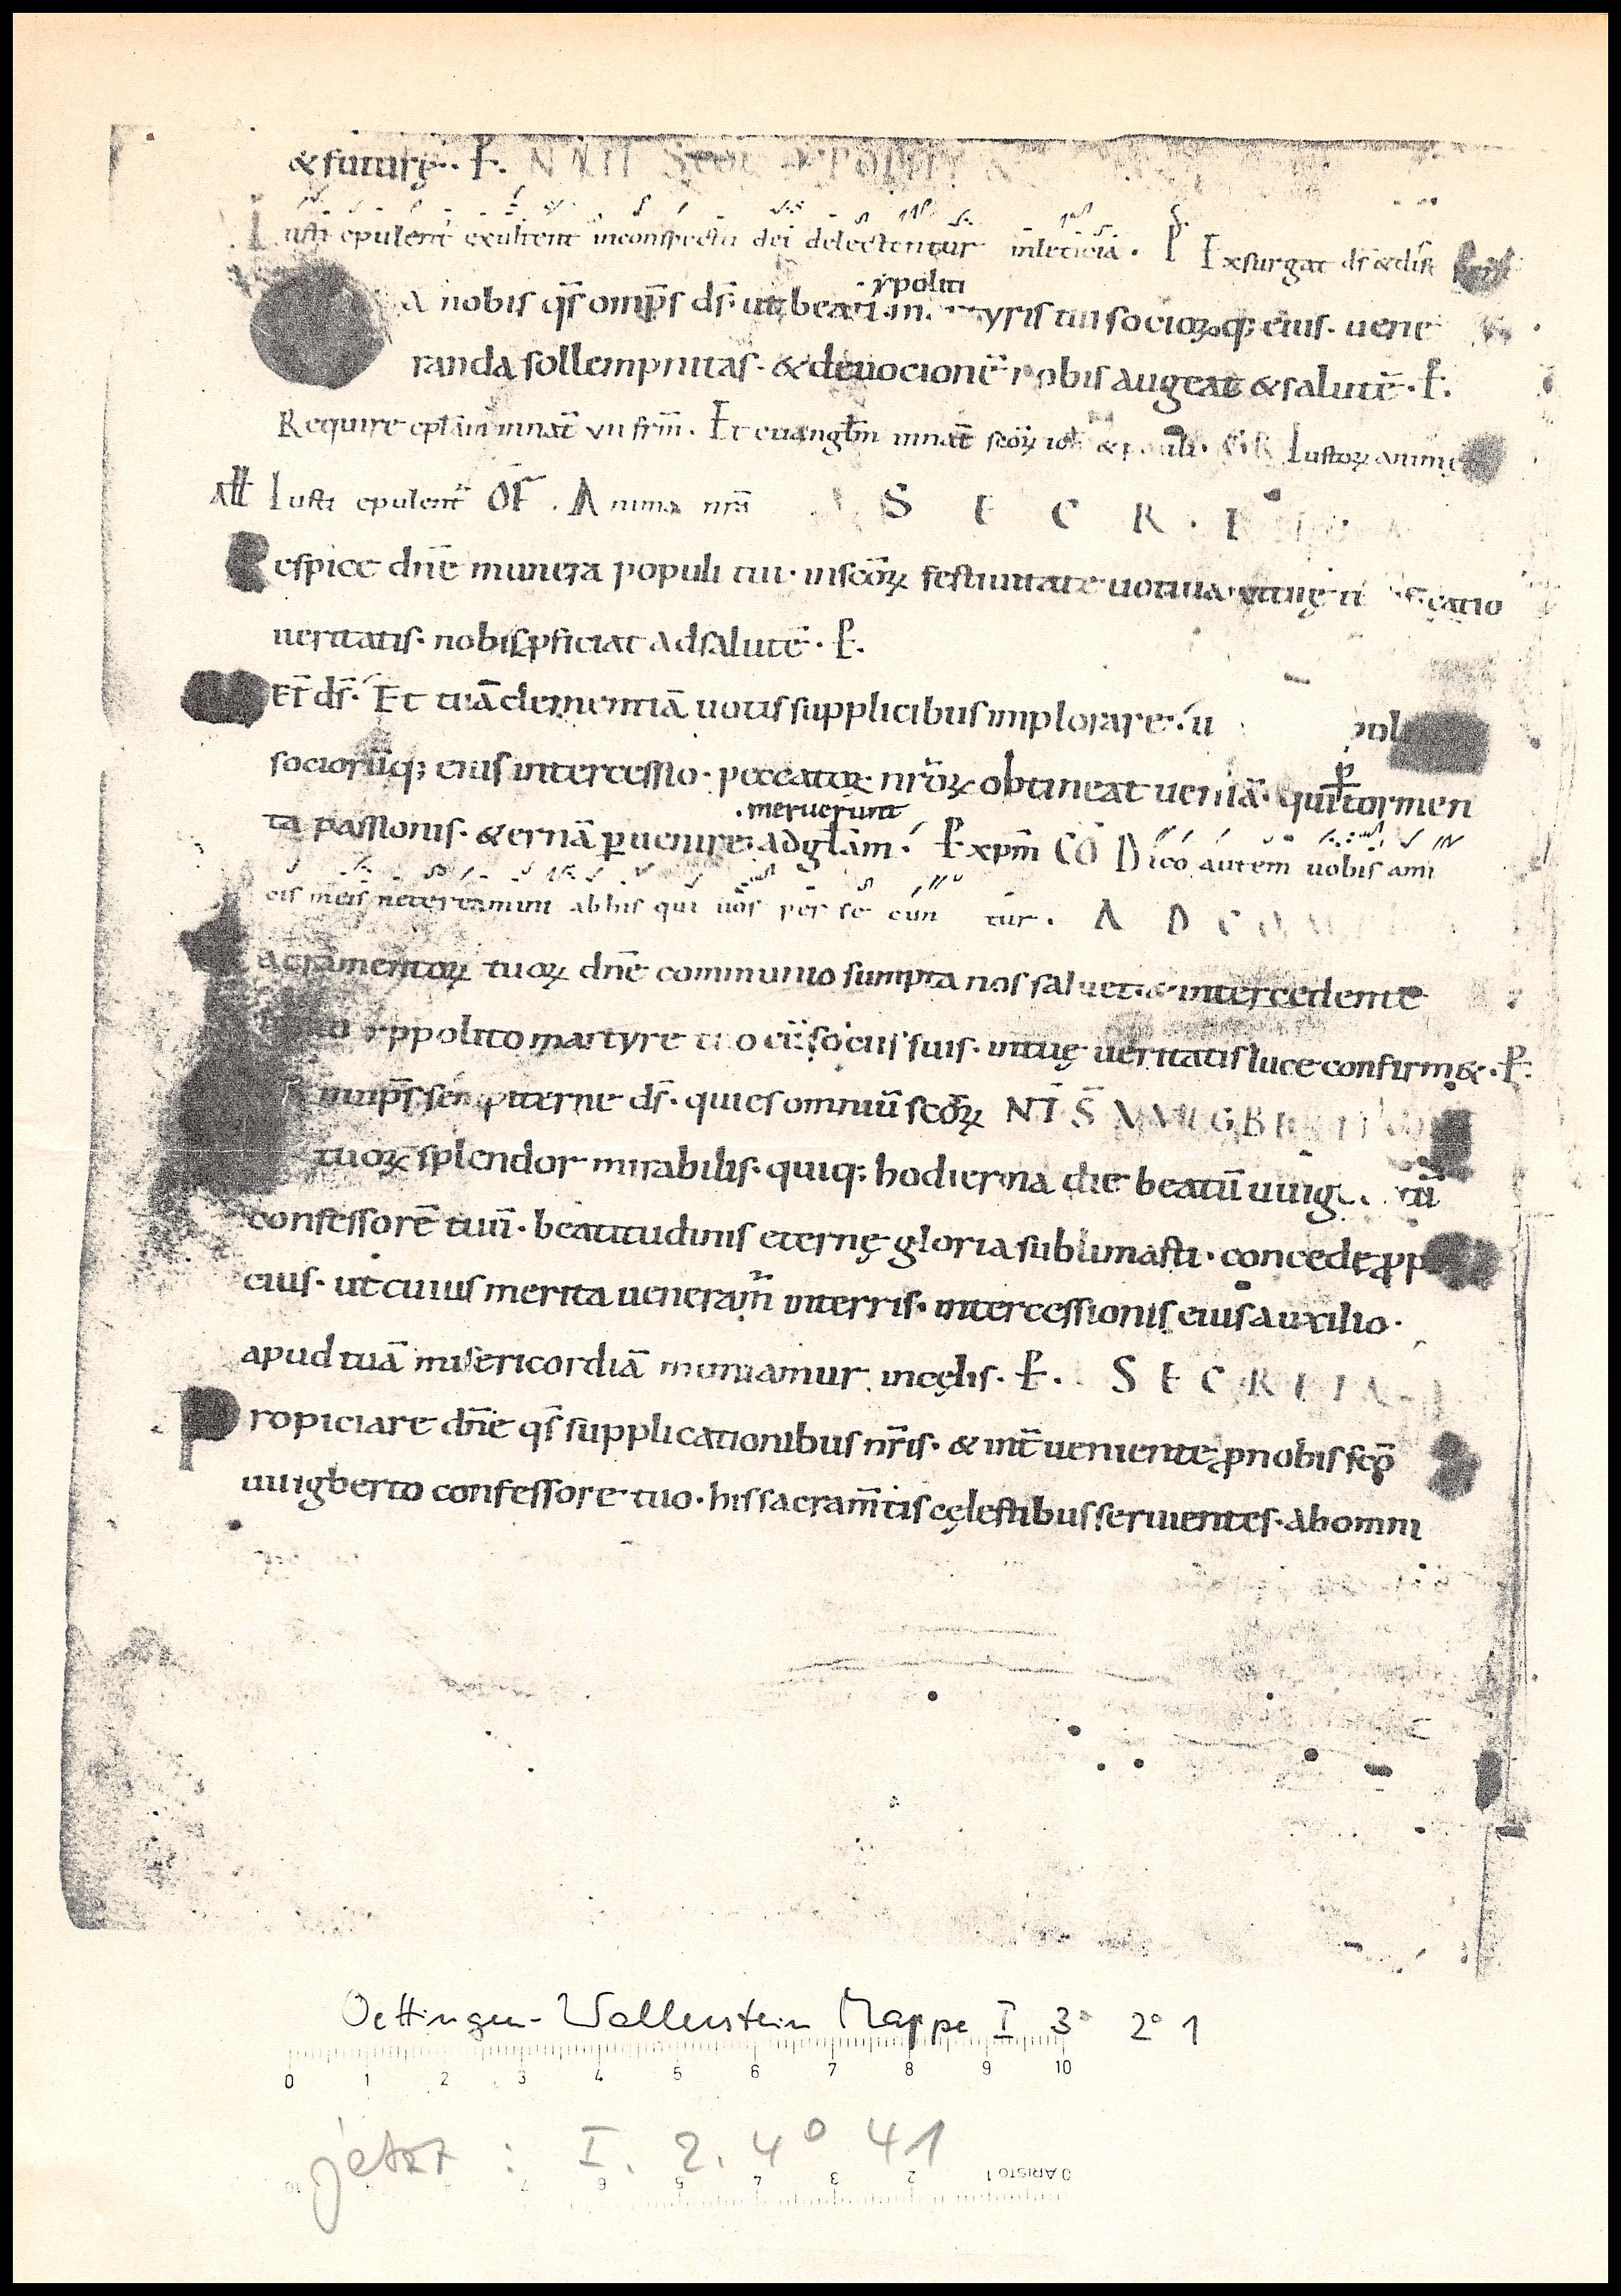 & futurę. P.
Iusti epulent exultent inconspectu dei delectentur inleticia. P Exsurgat ds̄ & dis
ypoliti
A nobis qs̄ omp̄s ds̄. ut beati m yris tui socioꝝq; eius. uene
randa sollempnitas. & deuocionē nobis augeat & salutē. P.
Require epłam innat̄ vii frm̄. Et euanglm̄ innat̄ scōꝝ ioh & pauli. GR Iustoꝝ animę
Ałł Iusti epulent̄ OF. Anima nr̄a S E C R E
Respice dn̄e munera populi tui. inscōꝝ festiuitate uotiua. & tuę catio
ueritatis. nobis ꝓficiat adsalutē. P.
Et̄ ds̄. Et tuā clementiā uotis supplicibus implorare. u pol
sociorūq; eius intercessio. peccatoꝝ nr̄oꝝ obtineat ueniā. qui p tormen
meruerunt
ta passionis. &ernā ꝑuenire adgłam. P xpm̄ CŌ Dico autem uobis ami
cis meis neterreamini abhis qui uos per se cun tur. A D C O
acramentoꝝ tuoꝝ dn̄e communio sumpta nos saluet. & intercedente
yppolito martyre tuo cū sociis suis. intuę ueritatis luce confirm&. P.
mnip̄s sempiterne ds̄. qui es omniū scōꝝ NT̄ S̄ VVIGB
tuoꝝ splendor mirabilis. quiq; hodierna die beatū uuig tū
confessorē tuū. beatitudinis eternę gloria sublimasti. concede ꝓp
cius. ut cuius merita ueneram̄ interris. intercessionis eius auxilio.
apud tuā misericordiā muniamur incęlis. P. S E C R E T A
Propiciare dn̄e qs̄ supplicationibus nr̄is. & int̄ueniente ꝓ nobis scō
uuigberto confessore tuo. his sacram̄tis cęlestibus seruientes. abomni
Oettingen-Wallerstein Mappe I 3° 2° 1
0 1 2 3 4 5 6 7 8 9 10
jetzt : I. 2. 4° 41
0 ARISTO 1 2 3 4 5 6 7 10